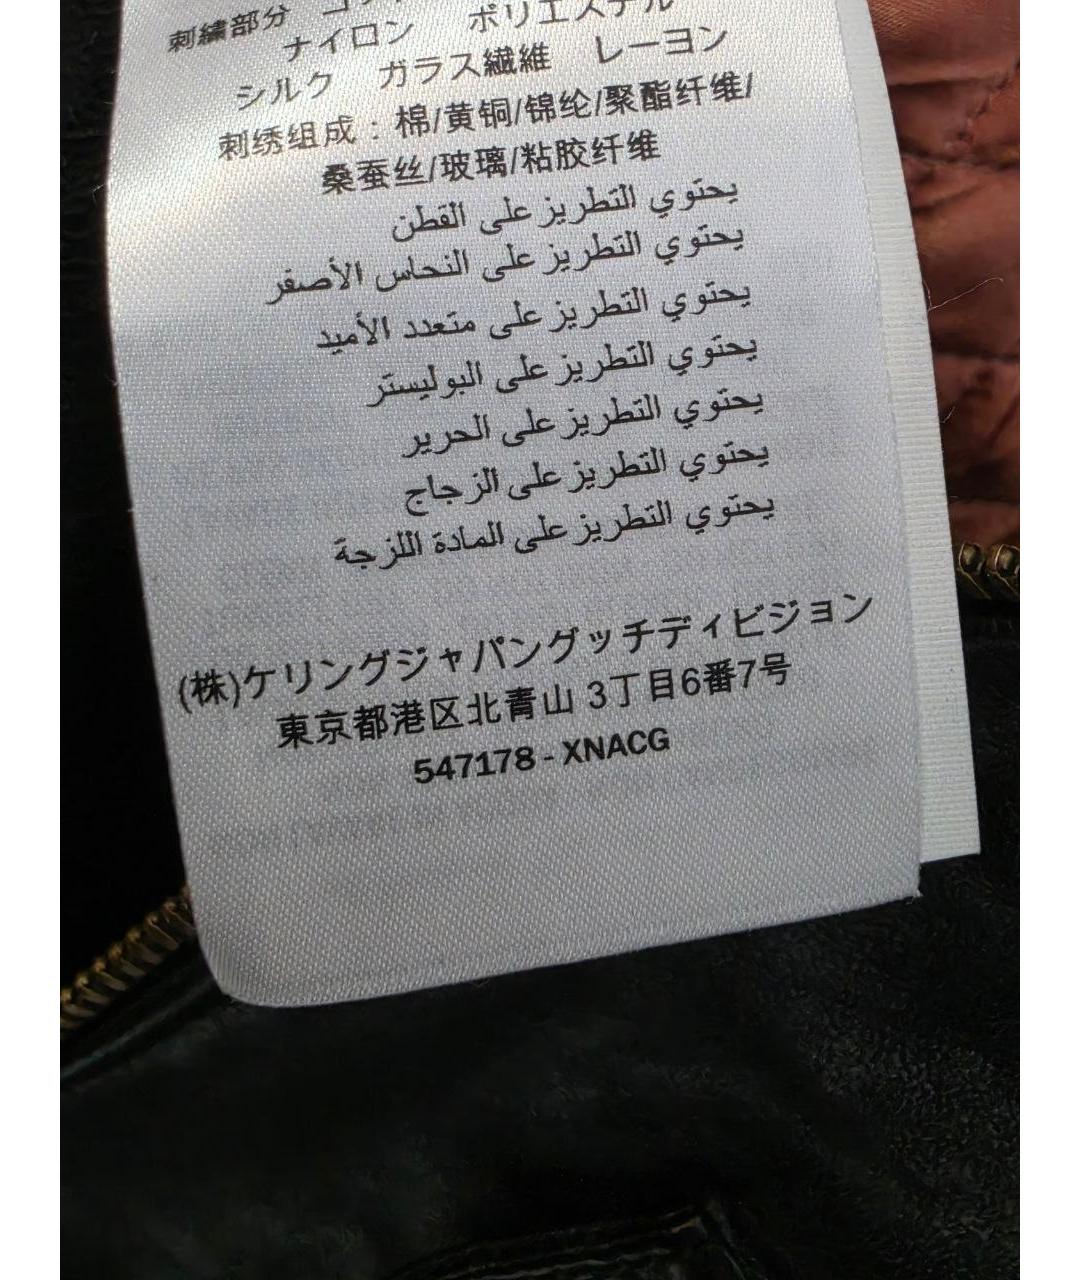 刺繍部分
ナイロン ポリエステル
シルク ガラス繊維 レーヨン
刺绣组成：棉/黄铜/锦纶/聚酯纤维/
桑蚕丝/玻璃/粘胶纤维
يحتوي التطريز على القطن
يحتوي التطريز على النحاس الأصفر
يحتوي التطريز على متعدد الأميد
يحتوي التطريز على البوليستر
يحتوي التطريز على الحرير
يحتوي التطريز على الزجاج
يحتوي التطريز على المادة اللزجة
(株)ケリングジャパングッチディビジョン
東京都港区北青山 3丁目6番7号
547178 - XNACG